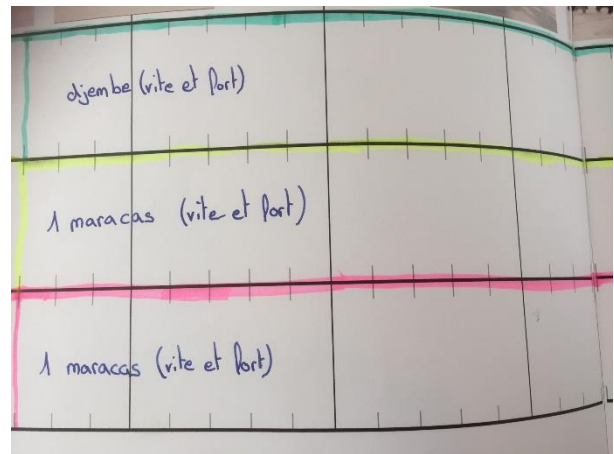 djembe (vite et fort)
1 maracas (vite et fort)
1 maracas (vite et fort)